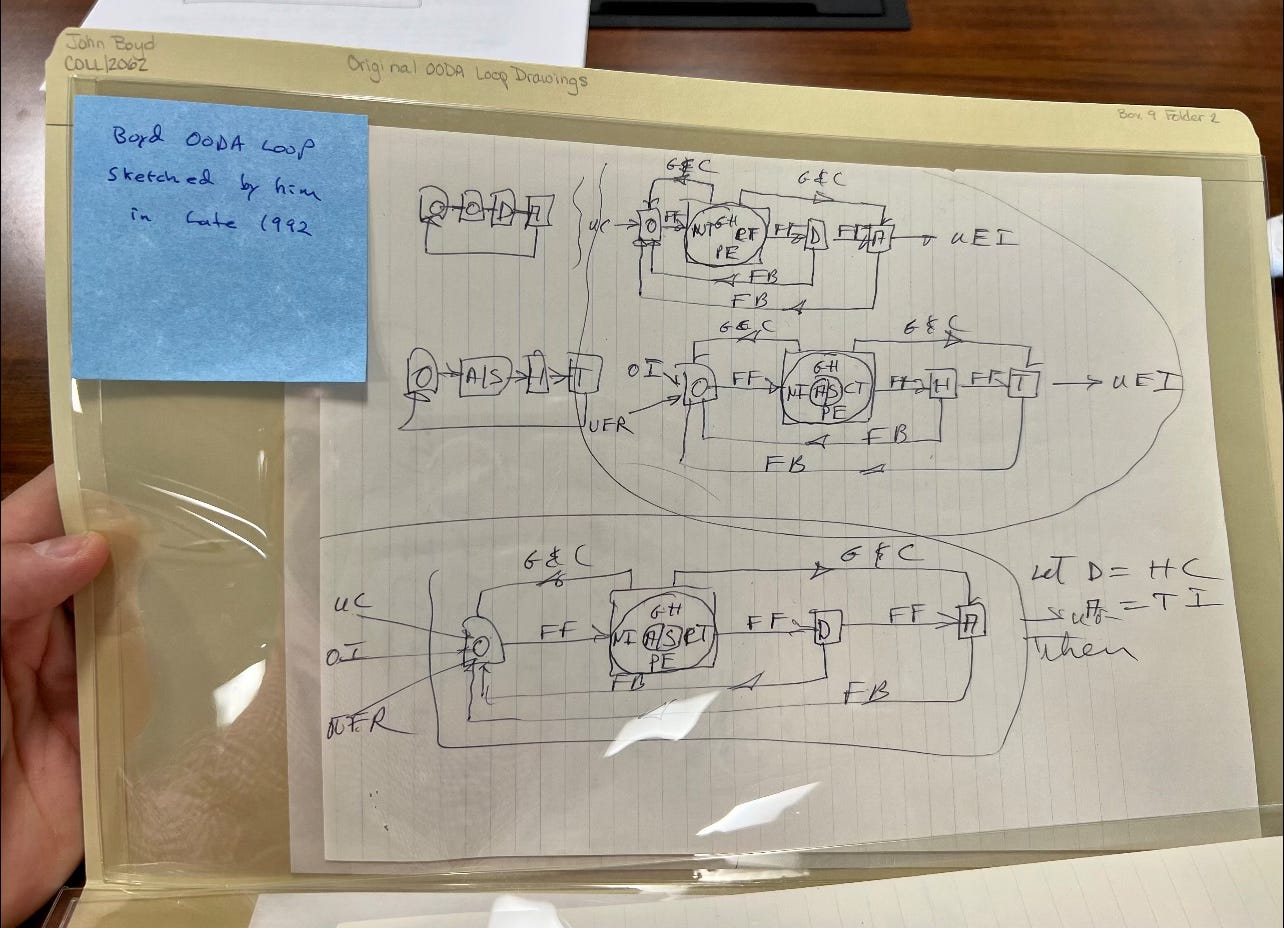 John Boyd
COLL/2062
Original OODA Loop Drawings
Box 9 Folder 2
Boyd OODA Loop
sketched by him
in late 1992
O O D A
G & C
G & C
UC O FF NI GH PE FF D FF A UEI
FB
FB
O A/S H T
G & C
G & C
OI O FF GH NI A/S CT PE FF H FF T UEI
UFR
FB
FB
G & C
G & C
UC
OI O FF GH NI A/S PE FF D FF A
UFR
FB
FB
Let D = HC
= TI
Then